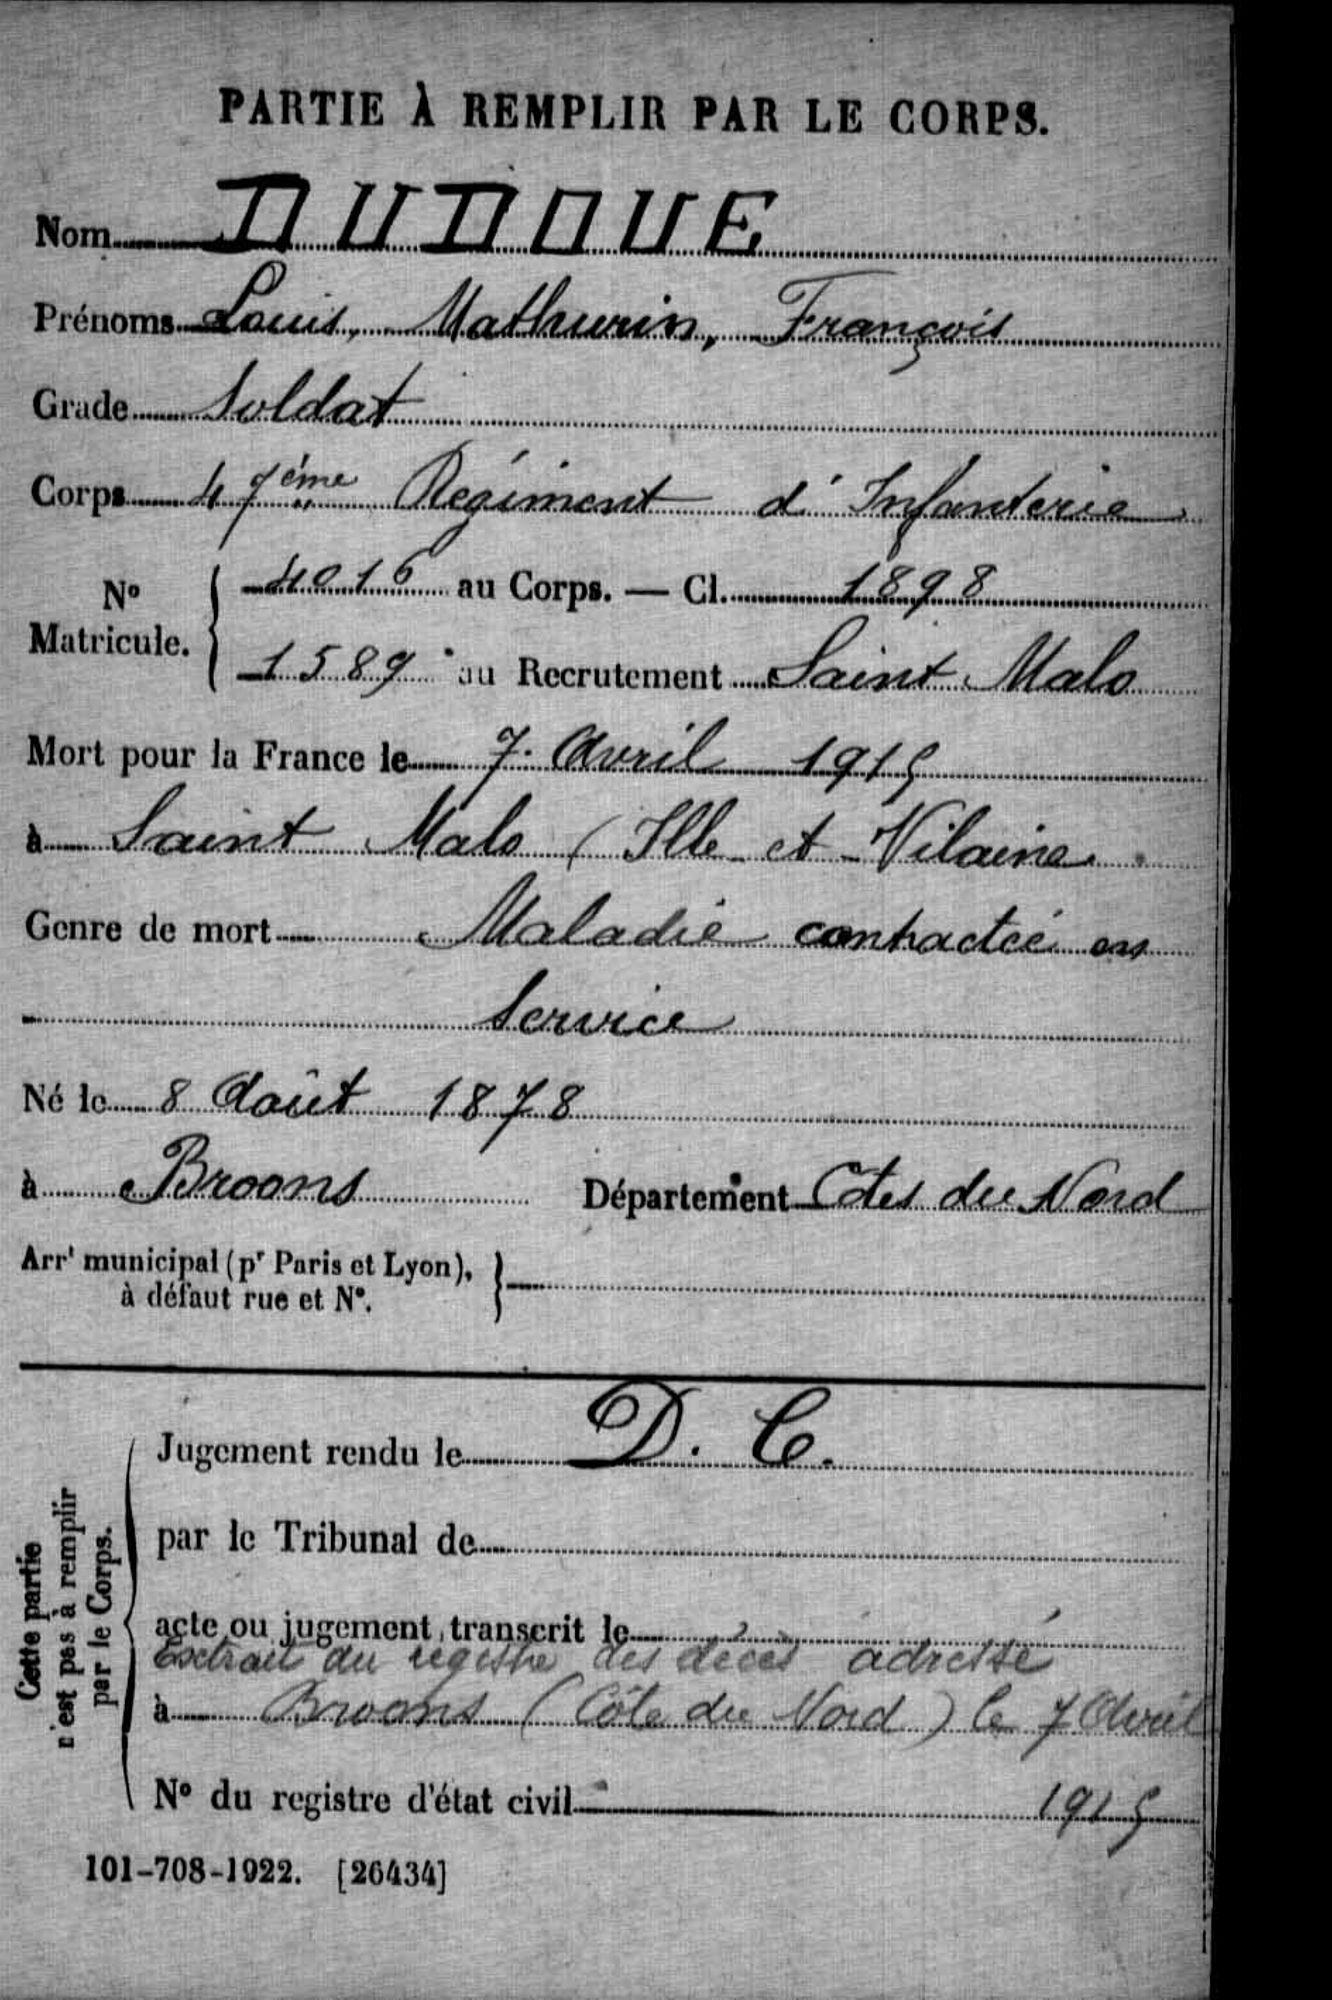 PARTIE À REMPLIR PAR LE CORPS.
Nom DUDOUE
Prénoms Louis, Mathurin, François
Grade Soldat
Corps 47ème Régiment d'Infanterie
N° Matricule. { 4016 au Corps. — Cl. 1898
1589 au Recrutement Saint Malo
Mort pour la France le 7 Avril 1915
à Saint Malo (Ille et Vilaine
Genre de mort Maladie contractée en
Service
Né le 8 Août 1878
à Broons Département Côtes du Nord
Arrt municipal (pr Paris et Lyon), }
à défaut rue et N°.
Cette partie
n'est pas à remplir
par le Corps.
Jugement rendu le D. C.
par le Tribunal de
acte ou jugement transcrit le
Extrait du registre des décès adressé
à Broons (Côte du Nord) le 7 Avril
N° du registre d'état civil 1915
101-708-1922. [26434]